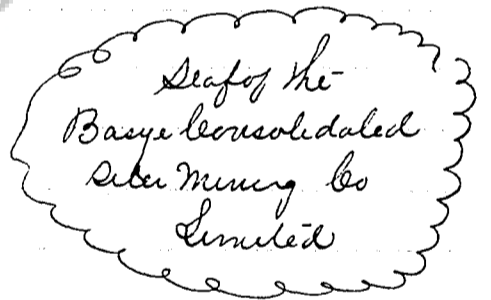 Seal of the
Basye Consolidated
Silver Mining Co
Limited